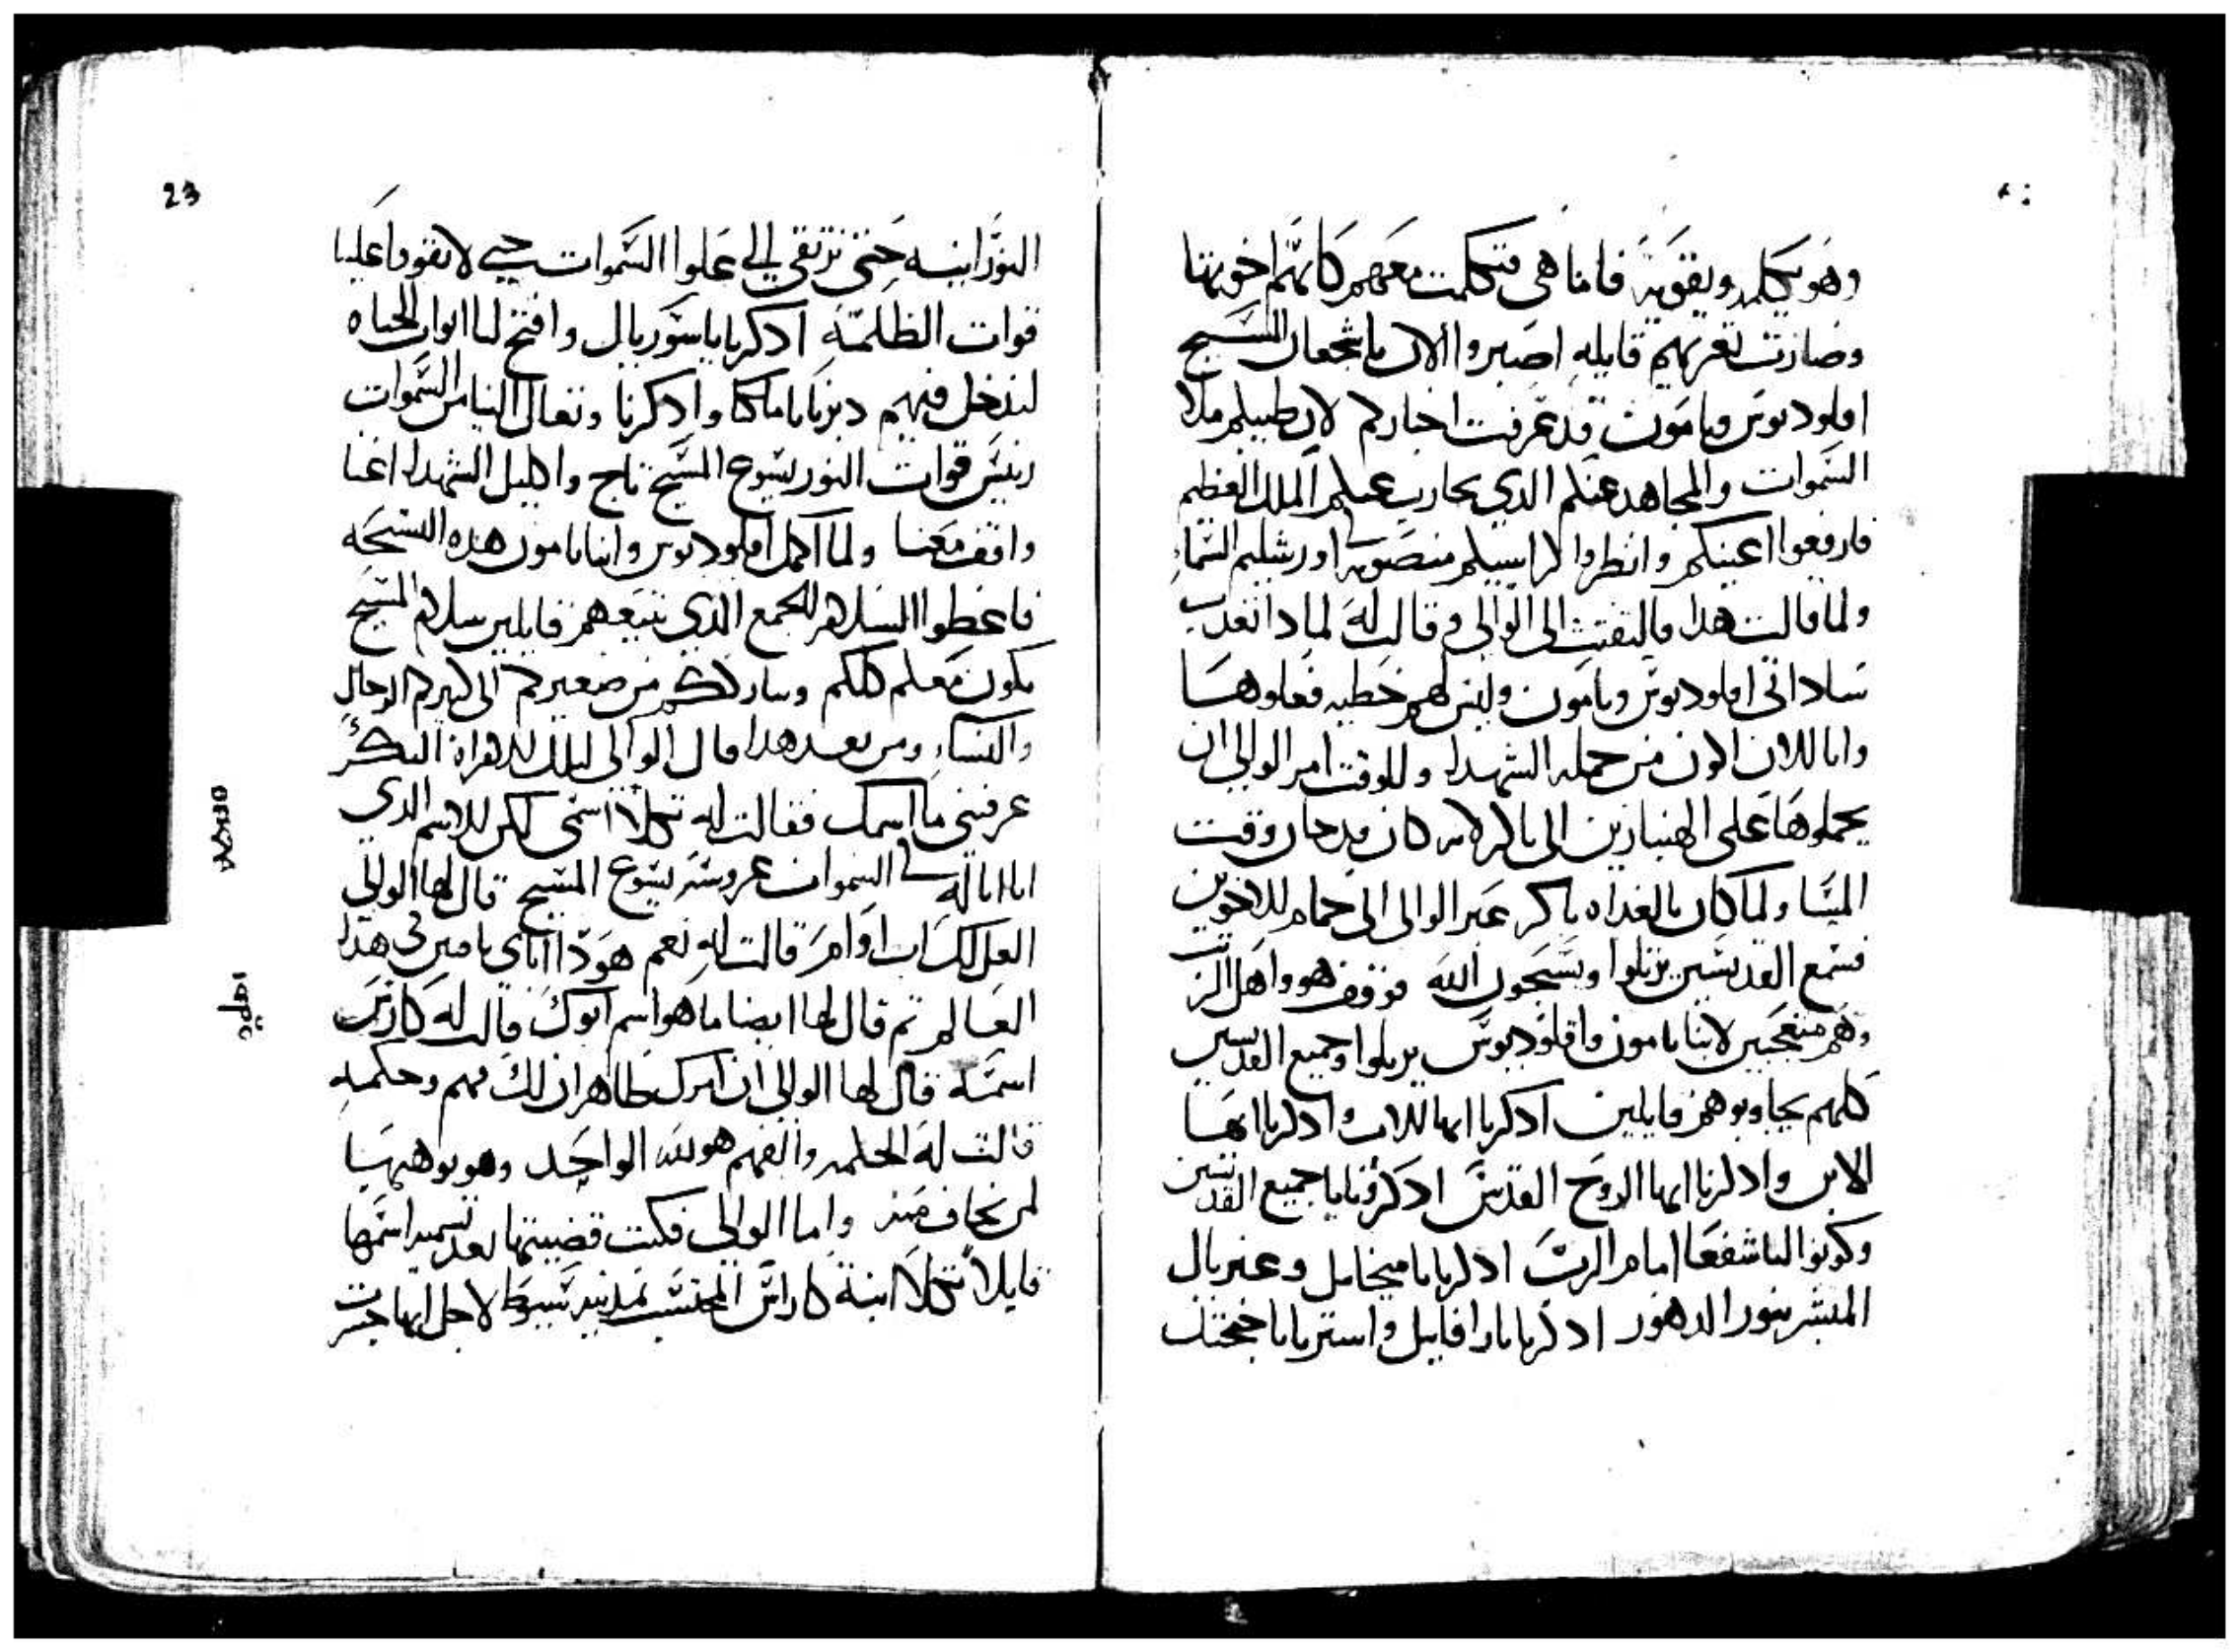 وهو يكلمه ويقويه فاما هي فتكلمت معهم كانهم اخوتها
وصارت تعزيهم قايله اصبروا الان يا شجعان المسيح
اقلوديوس وبامون قد عرفت اخباركم لان طبيبكم ملاك
السموات والمجاهد عنكم الدي يحارب عنكم الملك العظيم
فارفعوا اعينكم وانظروا كراسيكم منصوبه في اورشليم السماء
ولما قالت هدا فالتفتت الى الوالي وقالت له لمادا تعدب
ساداتي اقلوديوس وبامون وليس لهم خطيه فعلوها
وانا الان اكون من جمله الشهدا وللوقت امر الوالي ان
يحملوها على الهنبازين الى باكر لانه كان قد حان وقت
المسا ولما كان بالغداه باكر عبر الوالي الى حمام الاخوين
فسمع القديسين يرتلوا ويسبحون الله فوقف هو واهل
وهم متعجبين لانبا بامون واقلوديوس يرتلوا وجميع القديسين
كلهم يجاوبوهم قايلين ادكرنا ايها الاب وادكرنا ايها
الابن وادكرنا ايها الروح القدس ادكرونا يا جميع القديسين
وكونوا لنا شفعا امام الرب ادكرنا يا ميخاييل وغبريال
المبشر بنور الدهور ادكرنا يا رافاييل واسترنا باجنحتك
23
النورانيه حتى نرتقي الي علوا السموات حتي لا تقوما علينا
قوات الظلمه ادكرنا يا سوريال وافتح لنا ابواب الحياه
لندخل فيهم دبرنا يا ملكنا وادكرنا وتعال الينا من السموات
رييس قوات النور يسوع المسيح تاج واكليل الشهدا اعنا
واقف معنا ولما اكمل اقلوديوس وانبا بامون هده التسبحه
فاعطوا السلام للجمع الدي تتبعهم قايلين سلام المسيح
يكون معكم كلكم ويبارككم من صغيركم الى كبيركم الرجال
والنساء ومن بعد هدا قال الوالي لتلك الامراة البكر
عرفيني ما اسمك فقالت له تكلا اسمي لكن الاسم الدي
انا اناله في السموات عروسة يسوع المسيح قال لها الوالي
العل لك اب او ام قالت له نعم هودا اباي يامين في هدا
العالم تم قال لها ايضا ما هو اسم ابوك قالت له كاراس
اسمه قال لها الوالي ان امرك ظاهر ان لك فهم وحكمه
قالت له الحكمه والفهم هو لله الواحد وهو يوهبها
لمن يخاف منه واما الوالي فكتب قضيتها بعد تسميه اسمها
قايلا تكلا ابنة كاراس المحتسب بمدينه لاجل انها جسرت